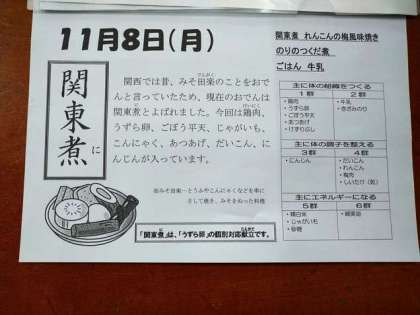 11月8日(月)
関東煮 れんこんの梅風味焼き
のりのつくだ煮
ごはん 牛乳
関東煮に
関西では昔、みそ田楽のことをおで
でんがく
んと言っていたため、現在のおでんは
関東煮とよばれました。今回は鶏肉、
けいにく
うずら卵、ごぼう平天、じゃがいも、
こんにゃく、あつあげ、だいこん、に
んじんが入っています。
※みそ田楽…とうふやこんにゃくなどを串に
さして焼き、みそをぬった料理
「関東煮」は、「うずら卵」の個別対応献立です。
主に体の組織をつくる
1群 2群
・鶏肉 ・牛乳
・うずら卵 ・きざみのり
・ごぼう平天
・あつあげ
・けずりぶし
主に体の調子を整える
3群 4群
・にんじん ・だいこん
・れんこん
・梅肉
・しいたけ(乾)
主にエネルギーになる
5群 6群
・精白米 ・綿実油
・じゃがいも
・砂糖